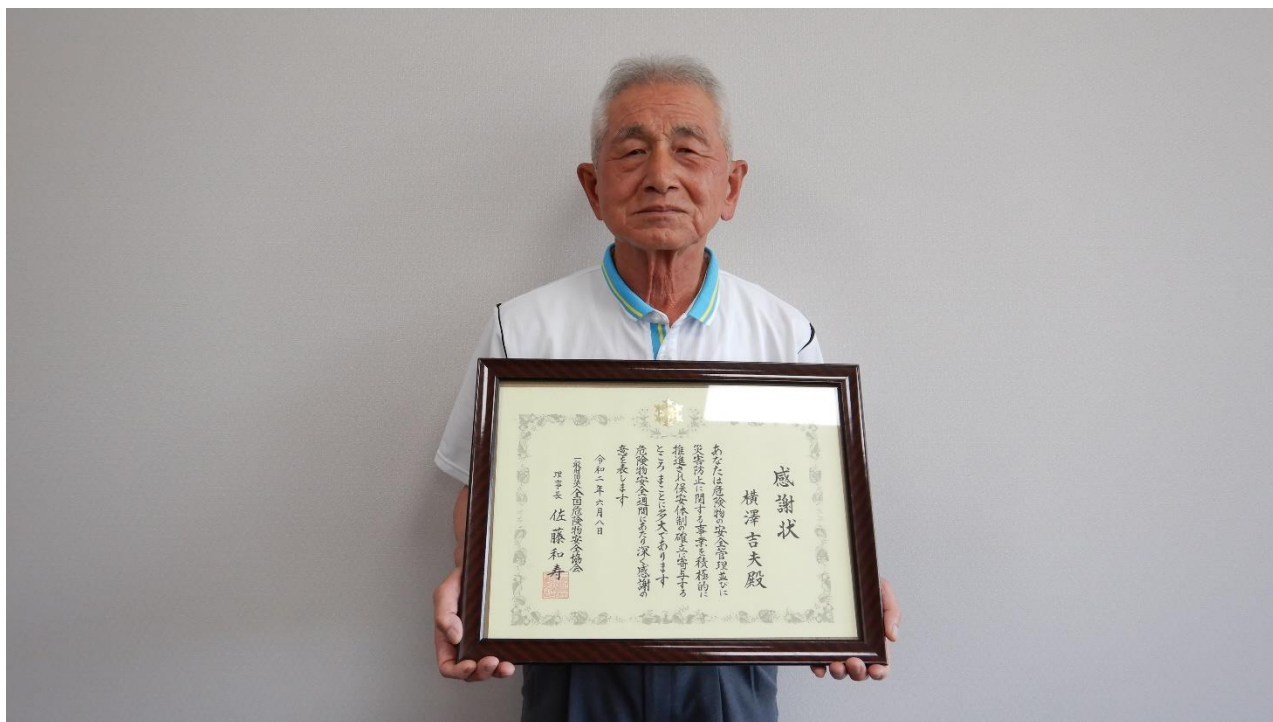 感謝状
横澤吉夫殿
あなたは危険物の安全管理並びに
災害防止に関する事業を積極的に
推進され保安体制の確立に寄与する
ところまことに多大であります
危険物安全週間にあたり深く感謝の
意を表します
令和二年六月八日
一般財団法人全国危険物安全協会
理事長 佐藤和寿